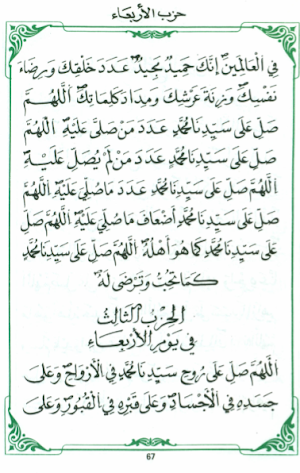 حزب الأربعاء
فِي الْعَالَمِينَ إِنَّكَ حَمِيدٌ مَجِيدٌ عَدَدَ خَلْقِكَ وَرِضَاءَ
نَفْسِكَ وَزِنَةَ عَرْشِكَ وَمِدَادَ كَلِمَاتِكَ اَللّٰهُمَّ
صَلِّ عَلَى سَيِّدِنَا مُحَمَّدٍ عَدَدَ مَنْ صَلَّى عَلَيْهِ اَللّٰهُمَّ
صَلِّ عَلَى سَيِّدِنَا مُحَمَّدٍ عَدَدَ مَنْ لَمْ يُصَلِّ عَلَيْهِ
اَللّٰهُمَّ صَلِّ عَلَى سَيِّدِنَا مُحَمَّدٍ عَدَدَ مَا صُلِّيَ عَلَيْهِ اَللّٰهُمَّ
صَلِّ عَلَى سَيِّدِنَا مُحَمَّدٍ أَضْعَافَ مَا صُلِّيَ عَلَيْهِ اَللّٰهُمَّ صَلِّ
عَلَى سَيِّدِنَا مُحَمَّدٍ كَمَا هُوَ أَهْلُهُ اَللّٰهُمَّ صَلِّ عَلَى سَيِّدِنَا مُحَمَّدٍ
كَمَا تُحِبُّ وَتَرْضَى لَهُ
اَلْحِزْبُ الثَّالِثُ
فِي يَوْمِ الْأَرْبِعَاءِ
اَللّٰهُمَّ صَلِّ عَلَى رُوحِ سَيِّدِنَا مُحَمَّدٍ فِي الْأَرْوَاحِ وَعَلَى
جَسَدِهِ فِي الْأَجْسَادِ وَعَلَى قَبْرِهِ فِي الْقُبُورِ وَعَلَى
67